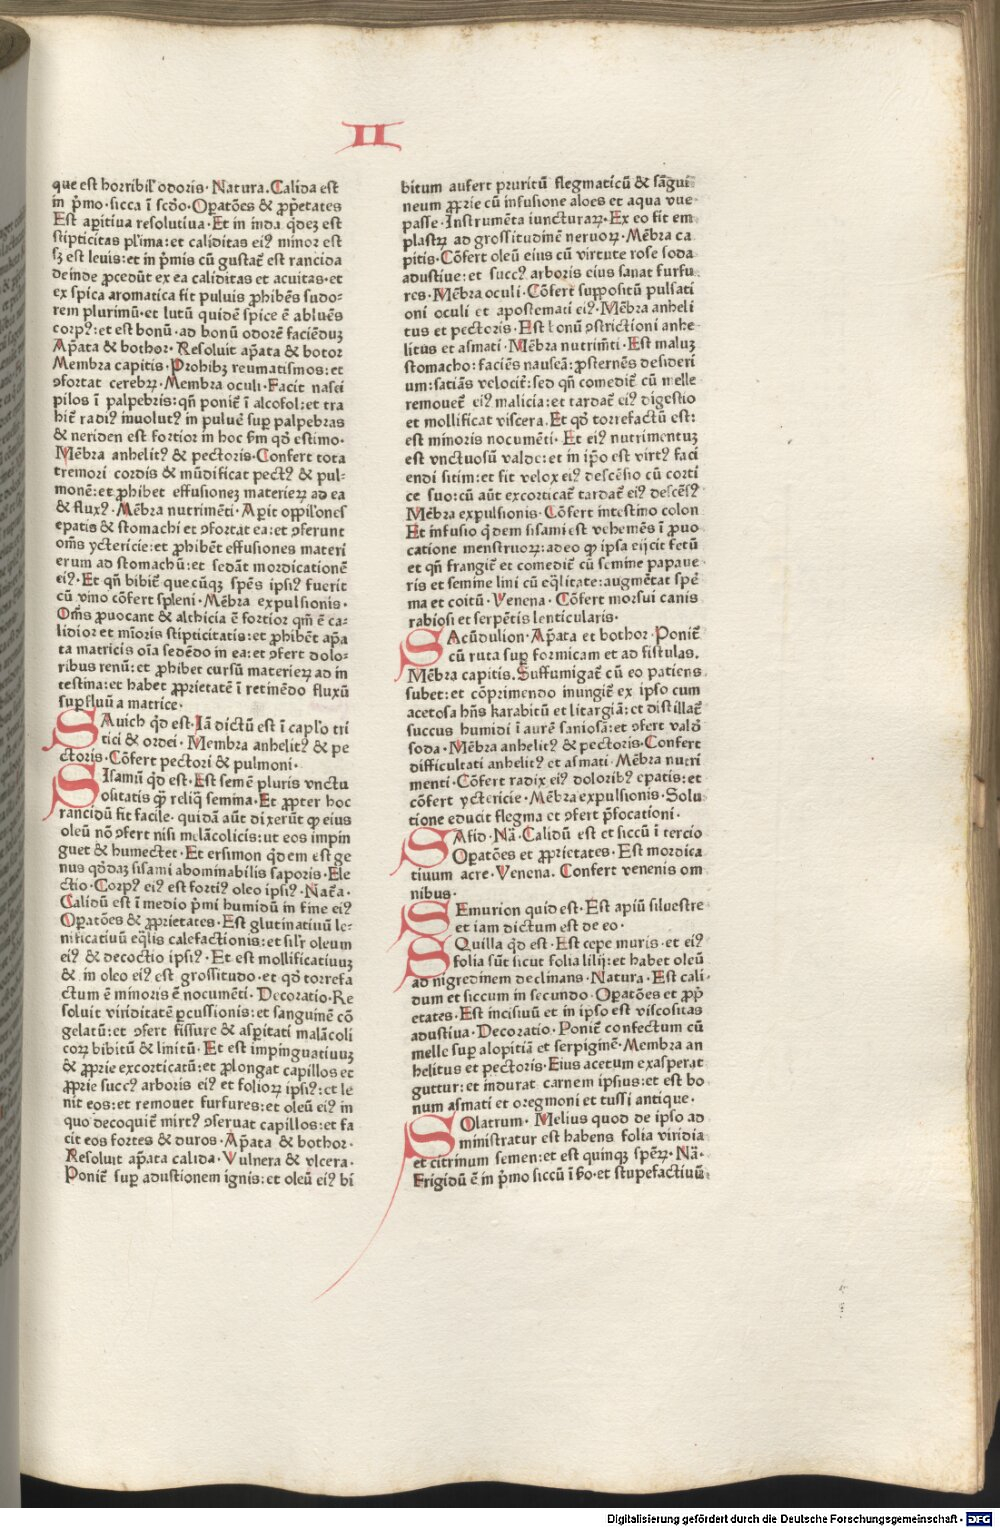 II
que est horribil' odoris. Natura. Calida est
in p̄mo. sicca ī scd̄o. Opatōes & ꝓp̄etates
Est apitiua resolutiua. Et in inda qd̄eʒ est
stipticitas pl'ima: et caliditas eiꝰ minor est
sʒ est leuis: et in p̄mis cū gustat̄ est rancida
deinde ꝓcedūt ex ea caliditas et acuitas. et
ex spica aromatica fit puluis ꝓhibēs sudo⸗
rem plurimū. et lutū quidē spice ē abluēs
corpꝰ: et est bonū. ad bonū odorē faciēduʒ
Ap̄ata & bothor. Resoluit ap̄ata & botor
Membra capitis. Prohibʒ reumatismos: et
ꝯfortat cerebrꝝ. Membra oculi. Facit nasci
pilos ī palpebris: qn̄ ponit̄ ī alcofol: et tra
hit̄ radiꝰ inuolutꝰ in puluē sup palpebras
& neriden est fortior in hoc fm qd̄ estimo.
Mēbra anhelitꝰ & pectoris. Confert tota
tremori cordis & mūdificat pectꝰ & pul⸗
monē: et ꝓhibet effusioneʒ materieꝝ ad ea
& fluxꝰ. Mēbra nutrimēti. Apit oppil'ones
epatis & stomachi et ꝯfortat ea: et ꝯferunt
om̄s yctericie: et ꝓhibēt effusiones materi
erum ad stomachū: et sedāt mordicationē
eiꝰ. Et qn̄ bibit̄ quecūqʒ spēs ipsiꝰ fuerit
cū vino cōfert spleni. Mēbra expulsionis.
Om̄s ꝓuocant & althicia ē fortior qm̄ ē ca⸗
lidior et mīoris stipticitatis: et ꝓhibēt ap̄a
ta matricis oīa sedēdo in ea: et ꝯfert dolo⸗
ribus renū: et ꝓhibet cursū materieꝝ ad in
testina: et habet ꝓprietatē ī retinēdo fluxū
supfluū a matrice.
Sauich qd̄ est. Iā dictū est ī capl'o tri
tici & ordei. Membra anhelitꝰ & pe
ctoris. Cōfert pectori & pulmoni.
Sisamū qd̄ est. Est semē pluris vnctu
ositatis qʒ reliq̄ semina. Et ꝓpter hoc
rancidū fit facile. quidā aūt dixerūt qʒ eius
oleū nō ꝯfert nisi melācolicis: ut eos impin
guet & humectet. Et ersimon qd̄em est ge
nus qd̄daʒ sisami abominabilis saporis. Ele
ctio. Corpꝰ eiꝰ est fortiꝰ oleo ipsiꝰ. Nat̄a.
Calidū est ī medio p̄mi humidū in fine eiꝰ
Opatōes & ꝓprietates. Est glutinatiuū le⸗
nificatiuū eq̄lis calefactionis: et sil'r oleum
eiꝰ & decoctio ipsiꝰ. Et est mollificatiuuʒ
& in oleo eiꝰ est grossitudo. et qd̄ torrefa
ctum ē minoris ē nocumēti. Decoratio. Re
soluit viriditatē pcussionis: et sanguinē cō
gelatū: et ꝯfert fissure & aspitati malācoli
coꝝ bibitū & linitū. Et est impinguatiuuʒ
& ꝓprie excorticatū: et ꝓlongat capillos et
ꝓprie succꝰ arboris eiꝰ et folioꝝ ipsiꝰ: et le
nit eos: et remouet furfures: et oleū eiꝰ in
quo decoquit̄ mirtꝰ ꝯseruat capillos: et fa
cit eos fortes & duros. Ap̄ata & bothor.
Resoluit ap̄ata calida. Vulnera & vlcera.
Ponit̄ sup adustionem ignis: et oleū eiꝰ bi
bitum aufert pruritū flegmaticū & sāgui
neum ꝓprie cū infusione aloes et aqua vue
passe. Instrumēta iuncturaꝝ. Ex eo fit em
plastꝝ ad grossitudinē neruoꝝ. Mēbra ca
pitis. Cōfert oleū eius cū virtute rose soda
adustiue: et succꝰ arboris eius sanat furfu
res. Mēbra oculi. Cōfert suppositū pulsati
oni oculi et apostemati eiꝰ. Mēbra anheli
tus et pectoris. Est bonū ꝯstrictioni anhe
litus et asmati. Mēbra nutrim̄ti. Est maluʒ
stomacho: faciēs nauseā: ꝓsternēs desideri
um: satiās velocit̄: sed qn̄ comedit̄ cū melle
remouet̄ eiꝰ malicia: et tardat̄ eiꝰ digestio
et mollificat viscera. Et qd̄ torrefactū est:
est minoris nocumēti. Et eiꝰ nutrimentuʒ
est vnctuosū valde: et in ip̄o est virtꝰ faci
endi sitim: et fit velox eiꝰ descēsio cū corti
ce suo: cū aūt excorticat̄ tardat̄ eiꝰ descēsꝰ
Mēbra expulsionis. Cōfert intestino colon
Et infusio qd̄em sisami est vehemēs ī ꝓuo
catione menstruoꝝ: adeo qʒ ipsa eijcit fetū
et qn̄ frangit̄ et comedit̄ cū semine papaue
ris et semine lini cū eq̄litate: augmētat spē
ma et coitū. Venena. Cōfert morsui canis
rabiosi et serpētis lenticularis.
Sacūdulion. Ap̄ata et bothor. Ponit̄
cū ruta sup formicam et ad fistulas.
Mēbra capitis. Suffumigat̄ cū eo patiens
subet: et cōprimendo inungit̄ ex ipso cum
acetosa hn̄s karabitū et litargiā: et distillat̄
succus humidi ī aurē saniosā: et ꝯfert vald̄
soda. Mēbra anhelitꝰ & pectoris. Confert
difficultati anhelitꝰ et asmati. Mēbra nutri
menti. Cōfert radix eiꝰ doloribꝰ epatis: et
cōfert yctericie. Mēbra expulsionis. Solu
tione educit flegma et ꝯfert p̄focationi.
Safid. Nā. Calidū est et siccū ī tercio
Opatōes et ꝓprietates. Est mordica
tiuum acre. Venena. Confert venenis om
nibus.
Semurion quid est. Est apiū siluestre
et iam dictum est de eo.
Squilla qd̄ est. Est cepe muris. et eiꝰ
folia sūt sicut folia lilij: et habet oleū
ad nigredinem declinans. Natura. Est cali
dum et siccum in secundo. Opatōes et ꝓp̄
etates. Est incisiuū et in ipso est viscositas
adustiua. Decoratio. Ponit̄ confectum cū
melle sup alopitiā et serpiginē. Membra an
helitus et pectoris. Eius acetum exasperat
guttur: et indurat carnem ipsius: et est bo
num asmati et oregmoni et tussi antique.
Solatrum. Melius quod de ipso ad
ministratur est habens folia viridia
et citrinum semen: et est quinqʒ speꝝ. Nā.
Frigidū ē in p̄mo siccū ī s̄o. et stupefactiuū
Digitalisierung gefördert durch die Deutsche Forschungsgemeinschaft - DFG